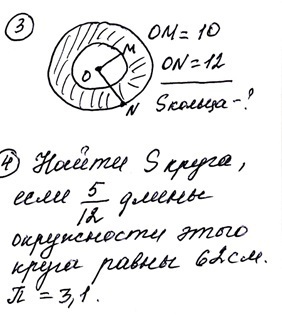 3
M
O
N
OM = 10
ON = 12
S кольца - ?
4 Найти S круга,
если 5/12 длины
окружности этого
круга равны 62 см.
П = 3,1.